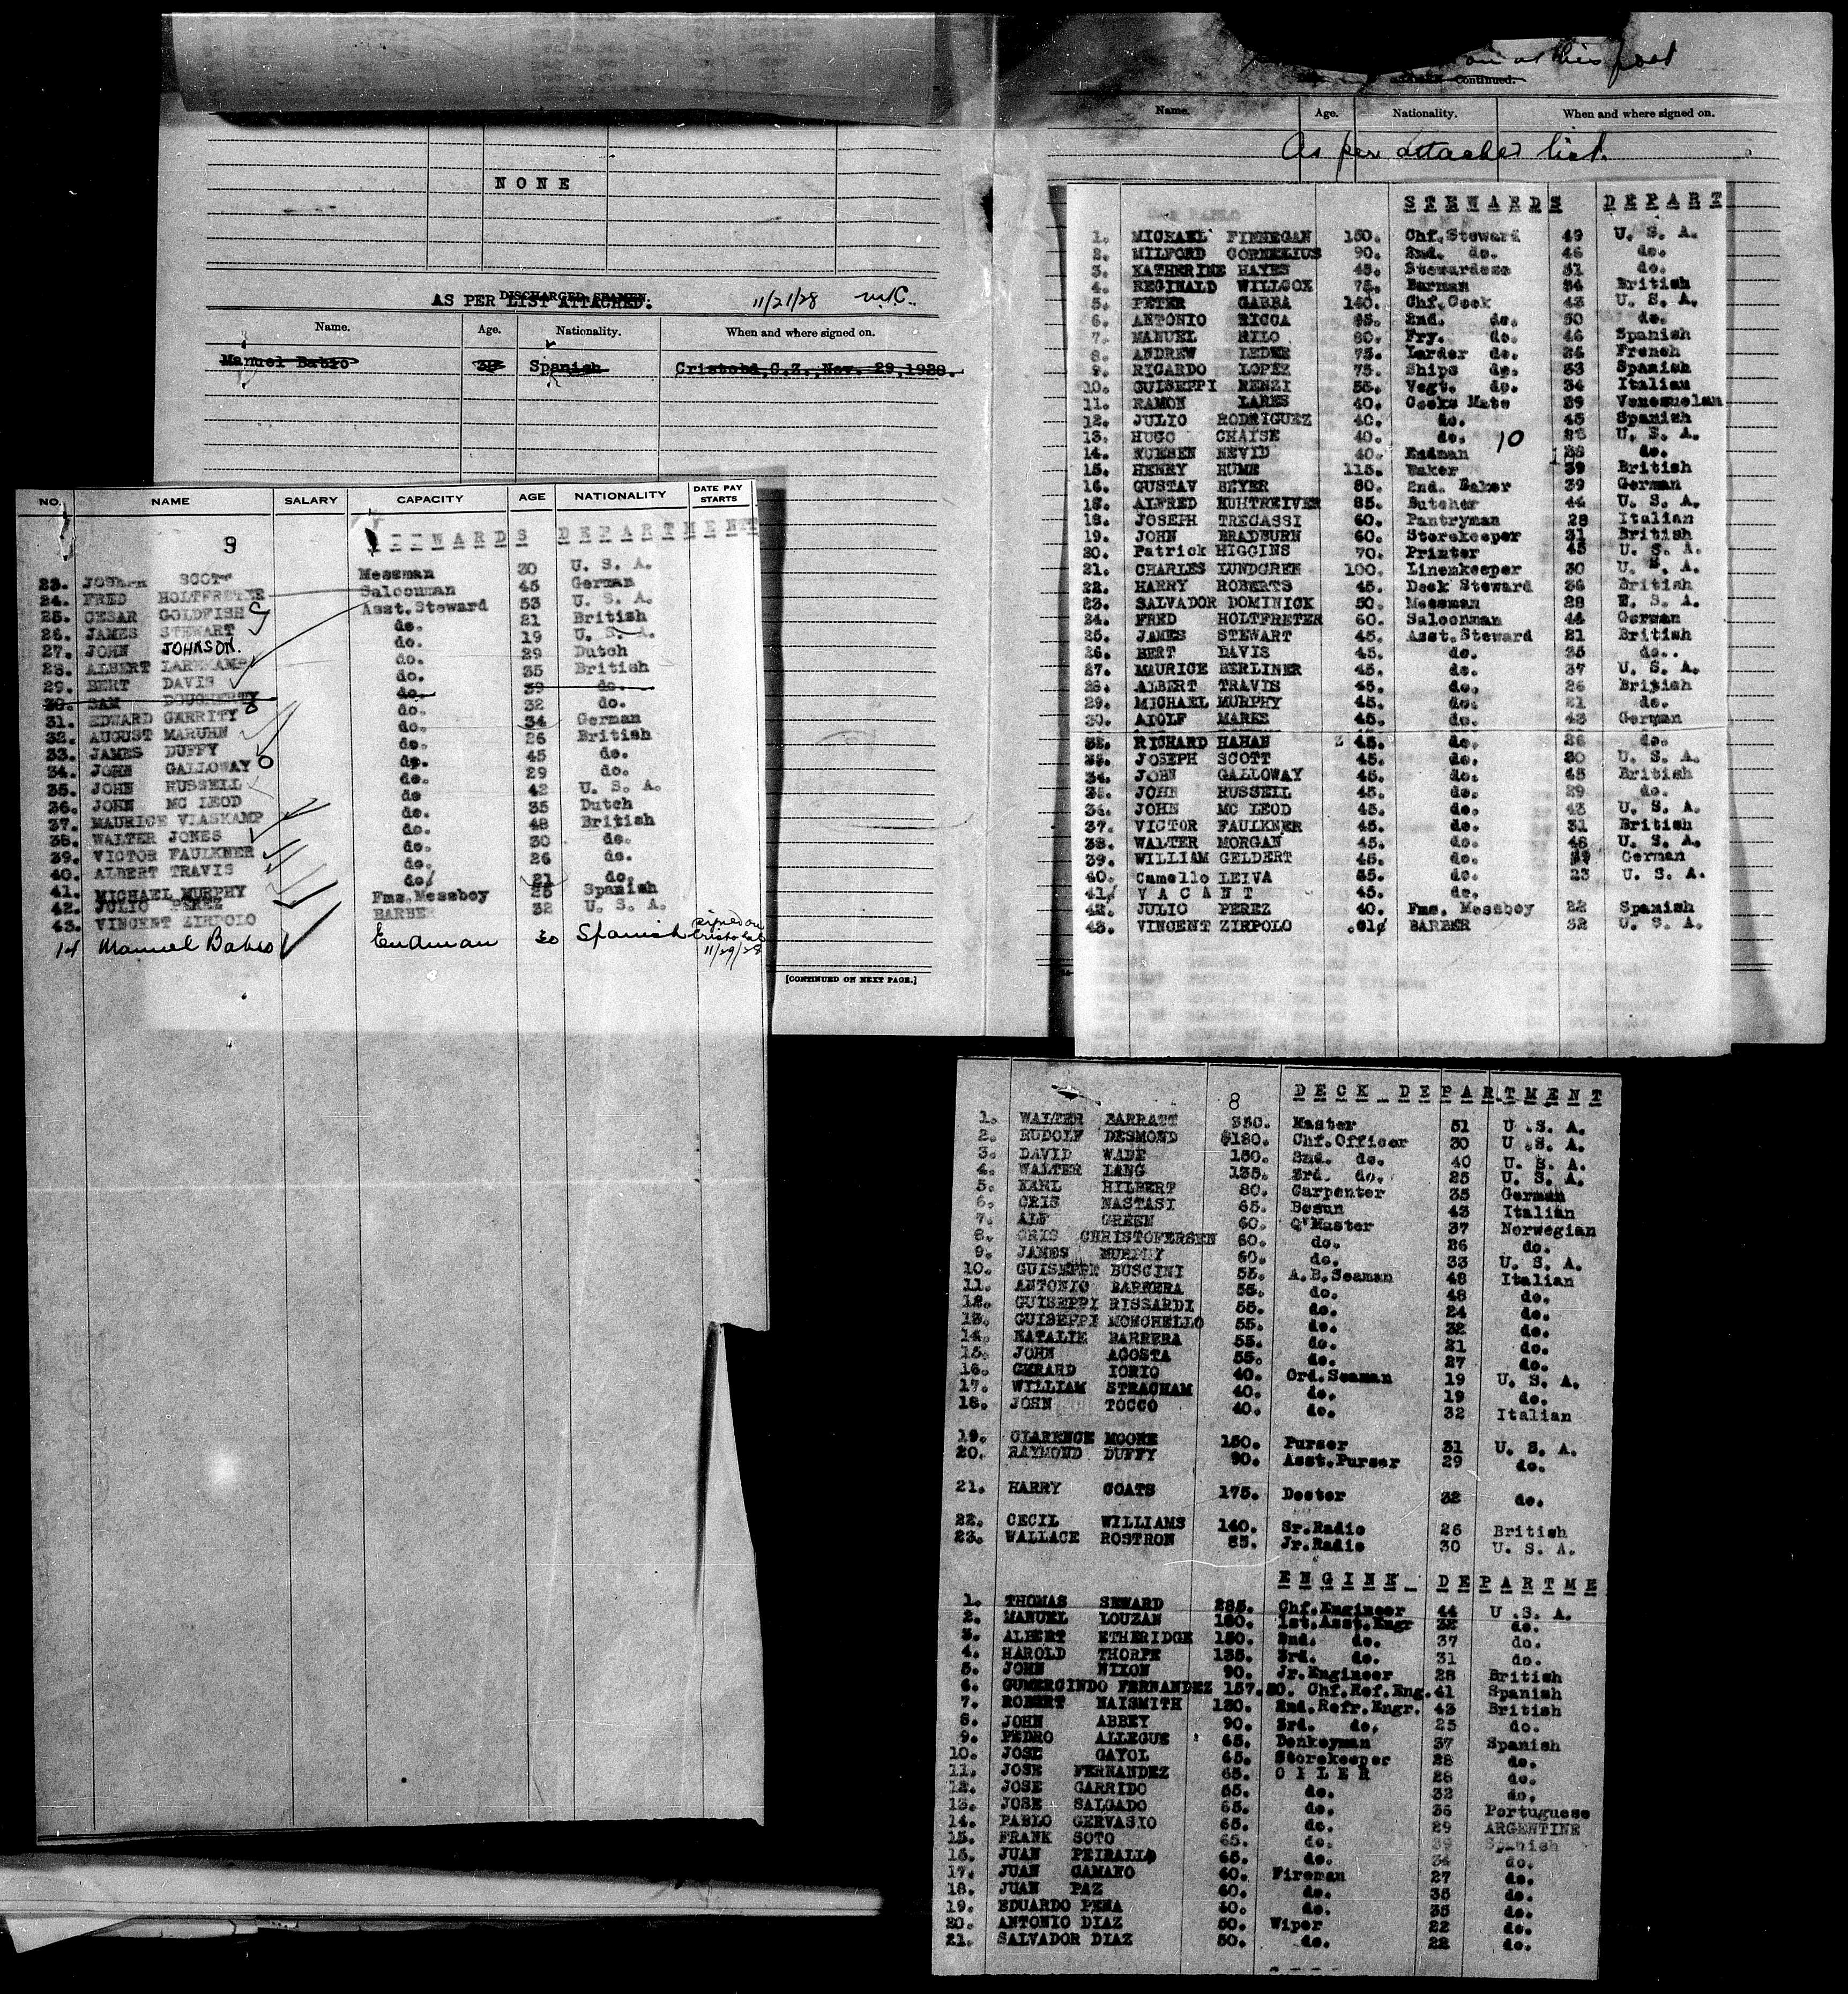 NONE
AS PER LIST ATTACHED:
DISCHARGED SEAMEN.
11/21/28
Name. Age. Nationality. When and where signed on.
Manuel Babio 30 Spanish Cristobal, C.Z., Nov. 29, 1928.
[CONTINUED ON NEXT PAGE.]
NO. NAME SALARY CAPACITY AGE NATIONALITY DATE PAY STARTS
9
DEPARTMENT
23. SCOTT Messman 30 U. S. A.
24. FRED HOLTFRETER Saloonman 45 German
25. CESAR GOLDFISH Asst.Steward 53 U. S. A.
26. JAMES STEWART do. 21 British
27. JOHN JOHNSON. do. 19 U. S. A.
28. ALBERT LAREKAMP do. 29 Dutch
29. BERT DAVIS do. 35 British
30. SAM DOUGHERTY do. 39 do.
31. EDWARD GERRITY do. 32 do.
32. AUGUST MARUHN do. 34 German
33. JAMES DUFFY do. 26 British
34. JOHN GALLOWAY do. 45 do.
35. JOHN RUSSELL do. 29 do.
36. JOHN MC LEOD do 42 U. S. A.
37. MAURICE VIASKAMP do. 35 Dutch
38. WALTER JONES do. 48 British
39. VICTOR FAULKNER do. 30 do.
40. ALBERT TRAVIS do. 26 do.
41. MICHAEL MURPHY do. 21 do.
42. JULIO PEREZ Fms.Messboy 25 Spanish
43. VINCENT ZIRPOLO BARBER 32 U. S. A.
14 Manuel Babio Endman 30 Spanish signed on Cristobal 11/29/28
on at this port
Continued.
Name. Age. Nationality. When and where signed on.
As per attached list.
STEWARDS DEPART
1. MICHAEL FINNEGAN 150. Chf.Steward 49 U. S. A.
2. MILFORD CORNELIUS 90. 2nd. do. 46 do.
3. KATHERINE HAYES 45. Stewardess 31 do.
4. REGINALD WILLCOX 75. Barman 34 British
5. PETER GABBA 140. Chf.Cook 43 U. S. A.
6. ANTONIO RICCA 95. 2nd. do. 50 do.
7. MANUEL RILO 80. Fry. do. 46 Spanish
8. ANDREW LEDER 75. Larder do. 24 French
9. RICARDO LOPEZ 75. Ships do. 33 Spanish
10. GUISEPPI RENZI 55. Vegt. do. 34 Italian
11. RAMON LARES 40. Cooks Mate 29 Venesuelan
12. JULIO RODRIGUEZ 40. do. 45 Spanish
13. HUGO CHAISE 40. do. 10 U. S. A.
14. NEVID 40. Endman do.
15. HENRY HUME 115. Baker 39 British
16. GUSTAV BEYER 80. 2nd. Baker 39 German
ALFRED 85. Butcher 44 U. S. A.
18. JOSEPH TRECASSI 60. Pantryman 28 Italian
19. JOHN BRADBURN 60. Storekeeper 31 British
20. Patrick HIGGINS 70. Printer 45 U. S. A.
21. CHARLES LUNDGREN 100. Linenkeeper 30 U. S. A.
22. HARRY ROBERTS 45. Deck Steward 36 British
23. SALVADOR DOMINICK 50. Messman 28 U. S. A.
24. FRED HOLTFRETER 60. Saloonman 44 German
25. JAMES STEWART 45. Asst.Steward 21 British
26. BERT DAVIS 45. do. 35 do..
27. MAURICE BERLINER 45. do. 37 U. S. A.
28. ALBERT TRAVIS 45. do. 26 British
29. MICHAEL MURPHY 45. do. 21 do.
30. ADOLF MARKS 45. do. 43 German
RICHARD HAHAN 45. do. 26 do.
JOSEPH SCOTT 45. do. 30 U. S. A.
34. JOHN GALLOWAY 45. do. 45 British
35. JOHN RUSSELL 45. do. 29 do.
36. JOHN MC LEOD 45. do. 43 U. S. A.
37. VICTOR FAULKNER 45. do. 31 British
38. WALTER MORGAN 45. do. 46 U. S. A.
39. WILLIAM GELDERT 45. do. German
40. Camello LEIVA 35. do. 23 U. S. A.
41. VACANT 45. do.
42. JULIO PEREZ 40. Fms. Messboy 22 Spanish
43. VINCENT ZIRPOLO .01¢ BARBER 32 U. S. A.
8 DECK DEPARTMENT
1. WALTER BARRATT 350. Master 51 U. S. A.
2. RUDOLF DESMOND $180. Chf.Officer 30 U. S. A.
3. DAVID WADE 150. 2nd. do. 40 U. S. A.
4. WALTER LANG 135. 3rd. do. 25 U. S. A.
5. KARL HILBERT 80. Carpenter 35 German
6. CRIS NASTASI 65. Bosun 43 Italian
7. ALF GREEN 60. Q'Master 37 Norwegian
8. CRIS CHRISTOFERSEN 60. do. 26 do.
9. JAMES MURPHY 60. do. 33 U. S. A.
10. GUISEPPI BUSCINI 55. A.B.Seaman 48 Italian
11. ANTONIO BARRERA 55. do. 48 do.
12. GUISEPPI RISSARDI 55. do. 24 do.
13. GUISEPPI MONCHELLO 55. do. 32 do.
14. NATALIE BARRERA 55. do. 21 do.
15. JOHN AGOSTA 55. do. 27 do.
16. GERARD IORIO 40. Ord.Seaman 19 U. S. A.
17. WILLIAM STRACHAM 40. do. 19 do.
18. JOHN TOCCO 40. do. 32 Italian
19. CLARENCE MOORE 150. Purser 31 U. S. A.
20. RAYMOND DUFFY 90. Asst.Purser 29 do.
21. HARRY COATS 175. Doctor 32 do.
22. CECIL WILLIAMS 140. Sr.Radio 26 British
23. WALLACE ROSTRON 85. Jr.Radio 30 U. S. A.
ENGINE DEPARTME
1. THOMAS SEWARD 285. Chf.Engineer 44 U .S. A.
2. MANUEL LOUZAN 180. 1st.Asst.Engr do.
3. ALBERT ETHERIDGE 150. 2nd. do. 37 do.
4. HAROLD THORPE 135. 3rd. do. 31 do.
5. JOHN NIXON 90. Jr.Engineer 28 British
6. GUMERCINDO FERNANDEZ 157.50. Chf.Ref.Eng. 41 Spanish
7. ROBERT NAISMITH 120. 2nd.Refr.Engr. 43 British
8. JOHN ABBEY 90. 3rd. do. 25 do.
9. PEDRO ALLEGUE 65. Donkeyman 37 Spanish
10. JOSE GAYOL 65. Storekeeper 28 do.
11. JOSE FERNANDEZ 65. OILER 28 do.
12. JOSE GARRIDO 55. do. 32 do.
13. JOSE SALGADO 65. do. 36 Portuguese
14. PABLO GERVASIO 65. do. 29 ARGENTINE
15. FRANK SOTO 65. do. 39 Spanish
16. JUAN PEIRALLO 65. do. 34 do.
17. JUAN CAMANO 60. Fireman 27 do.
18. JUAN PAZ 60. do. 35 do.
19. EDUARDO PENA 60. do. 35 do.
20. ANTONIO DIAZ 50. Wiper 22 do.
21. SALVADOR DIAZ 50. do. 22 do.